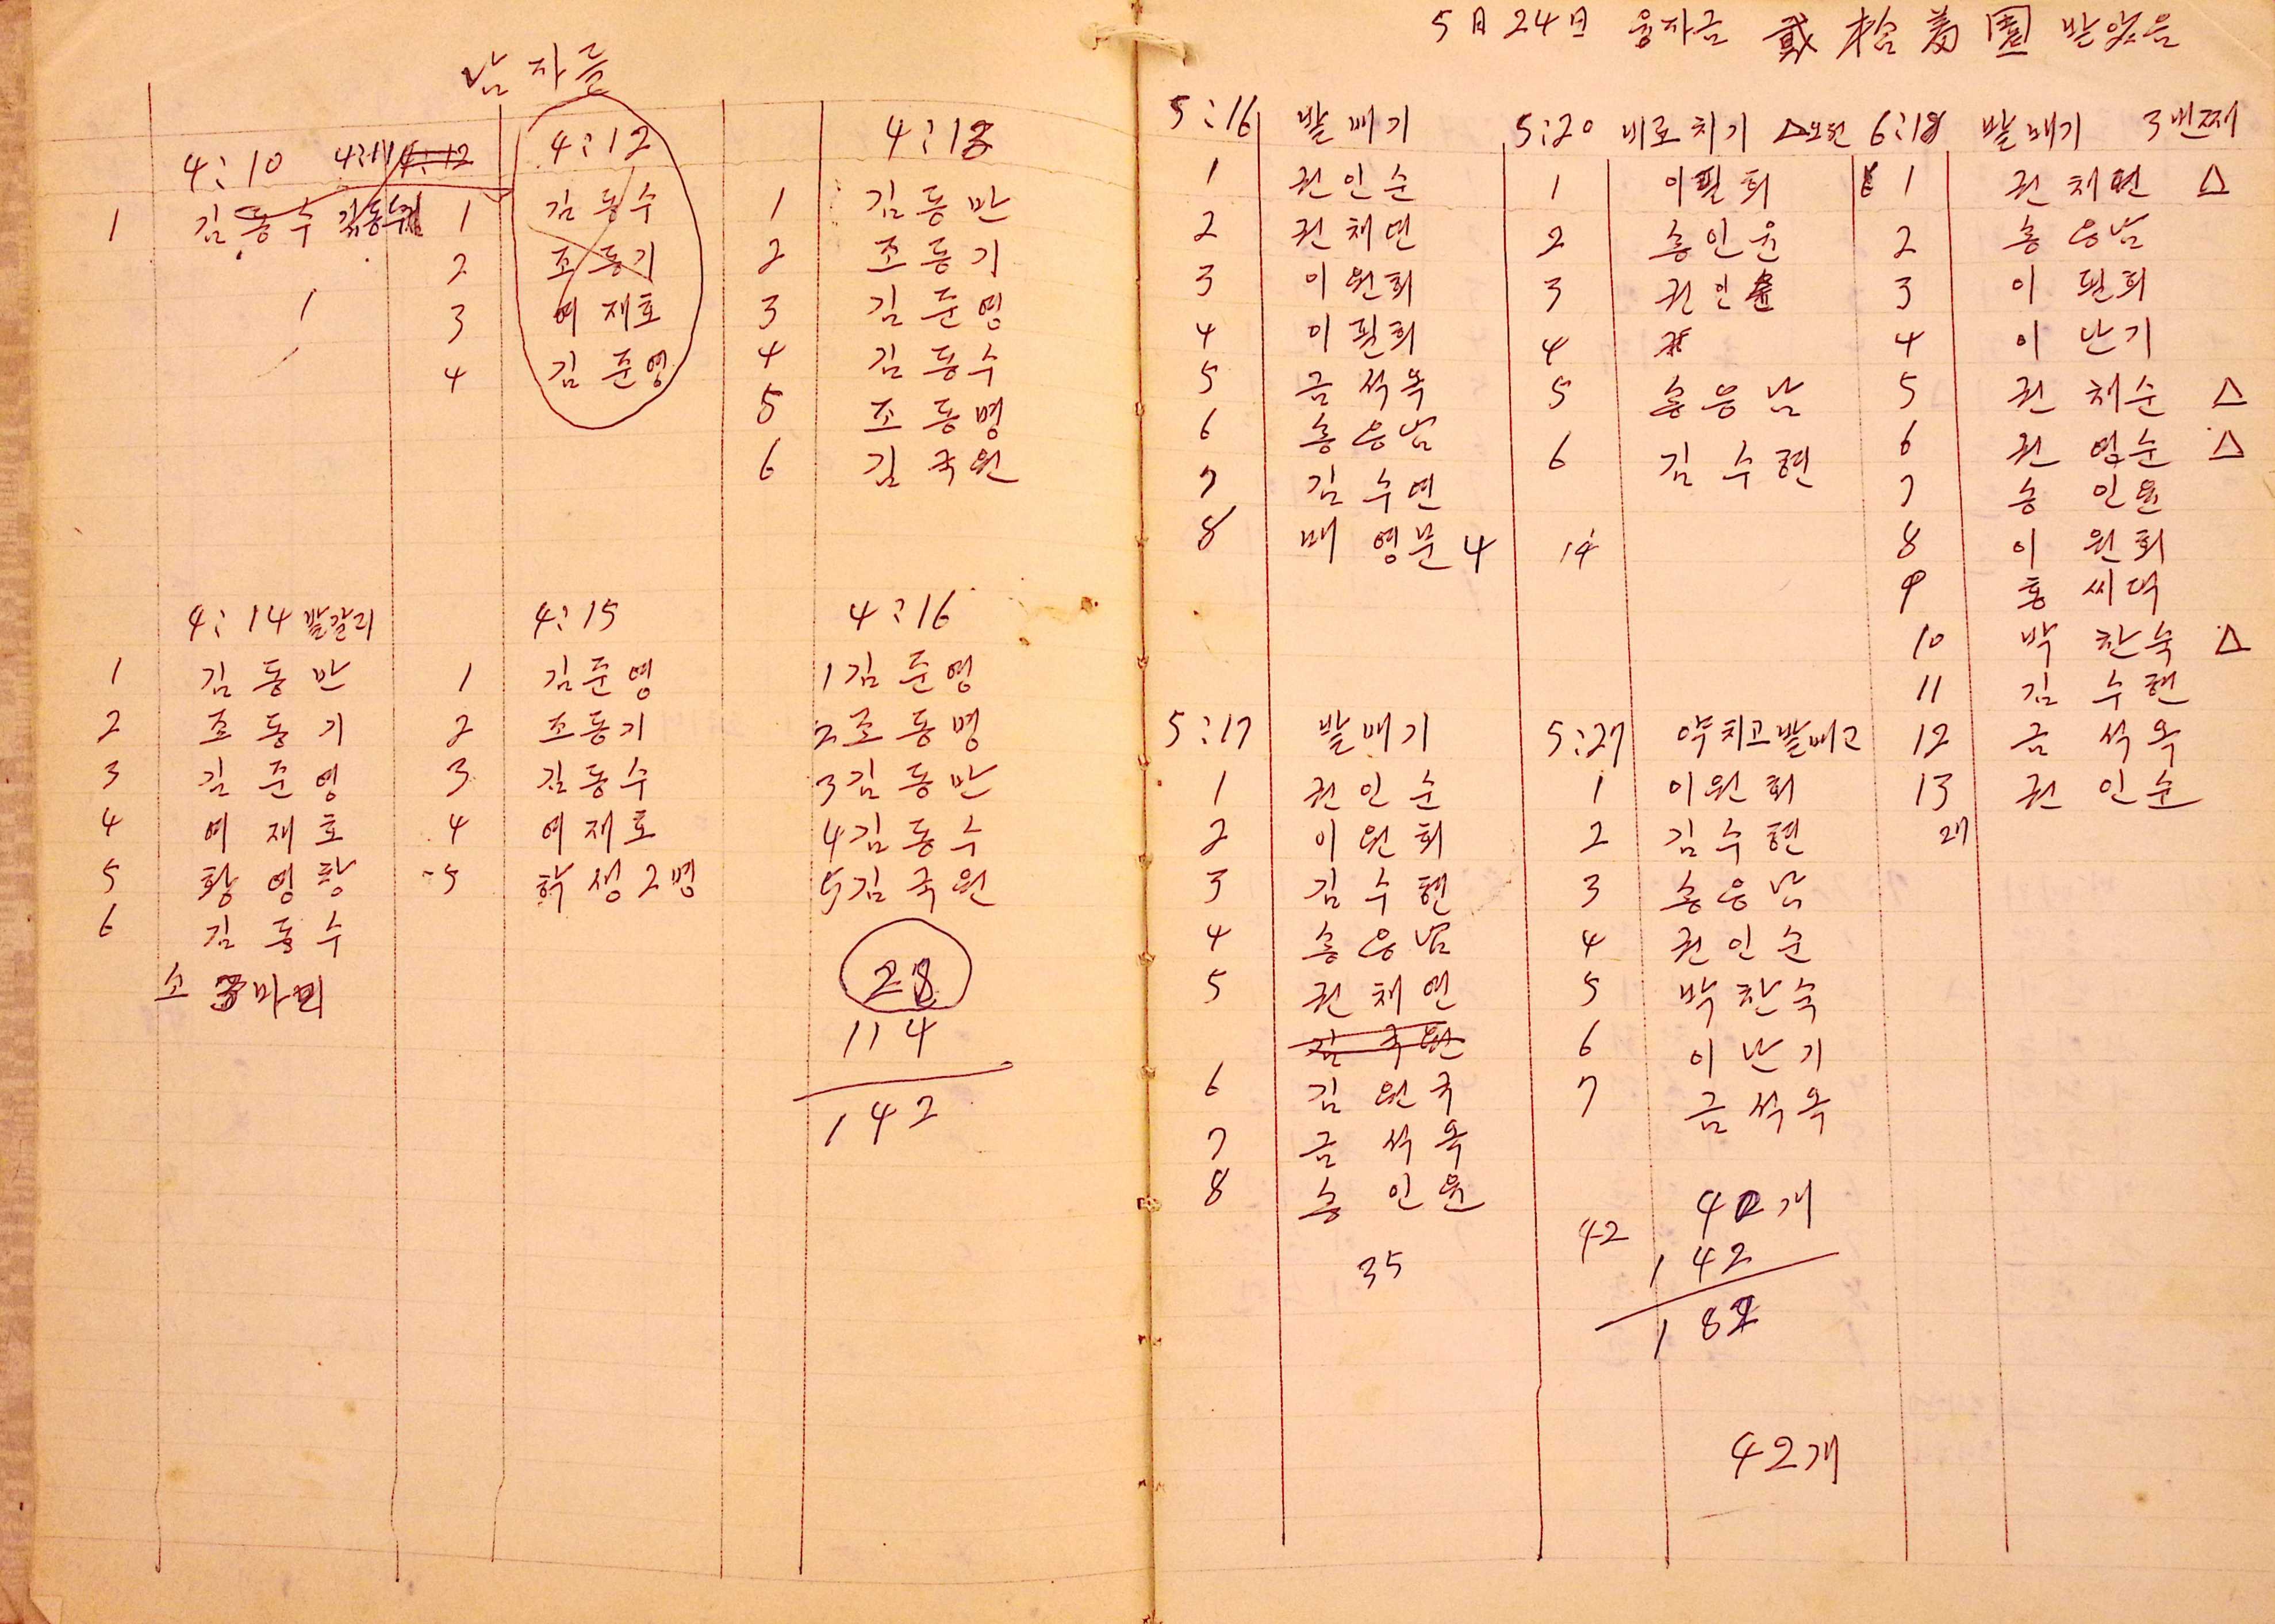 남자들
4:10 4:11 4:12
1 김동수 김동수
1
4:12
1 김동수
2 조동기
3 여재호
4 김준영
4:13
1 김동만
2 조동기
3 김준영
4 김동수
5 조동명
6 김국원
4:14 밭갈리
1 김동만
2 조동기
3 김준영
4 여재호
5 황영창
6 김동수
소 3마리
4:15
1 김준영
2 조동기
3 김동수
4 여재호
5 학생 2명
4:16
1 김준영
2 조동명
3 김동만
4 김동수
5 김국원
28
114
142
5月 24日 융자금 받았음
5:16 밭매기
1 권인순
2 권채연
3 이원희
4 이필희
5 금석옥
6 송응남
7 김수연
8 배영문 4
5:20 비료치기 △오전
1 이필희
2 송인윤
3 권인순
4
5 송응남
6 김수현
14
6:18 밭매기 3번째
1 권채연 △
2 송응남
3 이필희
4 이난기
5 권채순 △
6 권영순 △
7 송인윤
8 이원희
9 홍씨댁
10 박찬숙 △
11 김수현
12 금석옥
13 권인순
27
5:17 밭매기
1 권인순
2 이원희
3 김수현
4 송응남
5 권채연
김국원
6 김원국
7 금석옥
8 송인윤
35
5:27 약치고 밭매고
1 이원희
2 김수현
3 송응남
4 권인순
5 박찬숙
6 이난기
7 금석옥
42
42개
142
182
42개